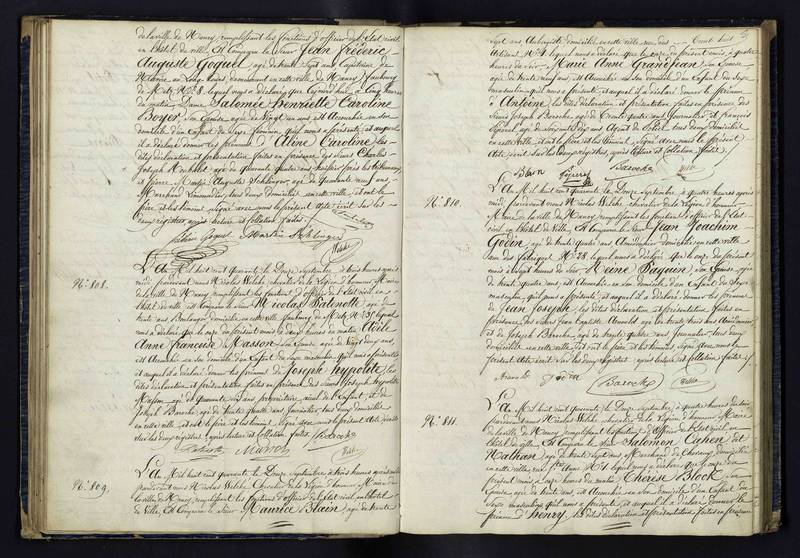 de la ville de Nancy, remplissant les fonctions d'officier de l'Etat civil
en l'hôtel de ville, Est Comparu le Sieur Jean frédéric
Auguste Goguel, agé de trente sept ans, Capitaine de
demeurant en cette ville de Nancy, faubourg
N° 8, lequel nous a déclaré que aujourd'hui à cinq heures
du matin, Dame Salomée henriette Caroline
Boyer, Son Epouse, agée de vingt un ans, est Accouchée en son
domicile d'un Enfant du Sexe féminin, qu'il nous a présenté, et auquel
il a déclaré donner les prénoms d'Aline Caroline, les
dites déclaration et présentation faites en présence des Sieurs Charles
Joseph agé de quarante quatre ans,
et pierre Martin Auguste Schlinger, agé de quarante neuf ans,
Marchand Limonadier, tous deux domiciliés en cette ville, et ont le
père et les témoins signé avec nous le présent Acte écrit sur les
deux registres après lecture et collation faites.
frédéric Goguel Martin Schlinger
N° 808.
L'An Mil huit cent quarante, le Douze Septembre à trois heures après
midi, pardevant nous Nicolas Welche, chevalier de la Légion d'honneur, Maire
de la ville de Nancy, remplissant les fonctions d'officier de l'état civil en
l'hôtel de ville, est Comparu le Sieur Nicolas agé de
trente ans, Boulanger, domicilié en cette ville, faubourg lequel
nous a déclaré que le onze du présent mois à deux heures du matin,
Anne françoise Masson, Son Epouse, agée de vingt deux ans,
est Accouchée en son domicile d'un Enfant du Sexe masculin qu'il nous a présenté
et auquel il a déclaré donner les prénoms de Joseph hypolite, les
dites déclaration et présentation faites en présence des Sieurs Joseph hypolite
Masson, agé de quarante ans, propriétaire, aïeul de l'Enfant, et de
Joseph Baroche, agé de trente quatre ans, Journalier, tous deux domiciliés
en cette ville, et ont le père et les témoins signé avec nous le présent Acte écrit
sur les deux registres, après lecture et collation faites.
Masson
N° 809.
L'An Mil huit cent quarante, le Douze Septembre à trois heures après midi,
pardevant nous Nicolas Welche, Chevalier de la Légion d'honneur, Maire de
la ville de Nancy, remplissant les fonctions d'officier de l'état civil, en l'hôtel
de Ville, Est Comparu le Sieur Maurice Blain, agé de trente
sept ans, domicilié en cette ville, rue des
N° 4, lequel nous a déclaré que le onze du présent mois, à quatre
heures du soir, Marie Anne Grandjean, Son Epouse,
agée de trente neuf ans, est Accouchée en son domicile d'un Enfant du Sexe
masculin qu'il nous a présenté, et auquel il a déclaré donner le prénom
d'Antoine, les dites déclaration et présentation faites en présence des
Sieurs Joseph Baroche, agé de trente quatre ans, Journalier, et françois
agé de soixante ans, Agent de Police, tous deux domiciliés
en cette ville, et ont le père et les témoins Signé avec nous le présent
Acte écrit sur les deux registres, après lecture et collation faites.
Blain Baroche
N° 810.
L'An Mil huit cent quarante, le Douze Septembre, à quatre heures après
midi, pardevant nous Nicolas Welche, chevalier de la Légion d'honneur,
Maire de la ville de Nancy, remplissant les fonctions d'officier de l'Etat
civil en l'hôtel de Ville, Est Comparu le Sieur Jean Joachim
Godin, agé de trente quatre ans, domicilié en cette ville
rue des fabriques N° 28, lequel nous a déclaré que le onze du présent
mois à heures du soir, Reine Paquin, son Epouse, agée
de trente quatre ans, est Accouchée en son domicile d'un Enfant du Sexe
masculin, qu'il nous a présenté, et auquel il a déclaré donner les prénoms
de Jean Joseph, les dites déclaration et présentation, faites en
présence des Sieurs Jean Baptiste agé de trente trois ans,
et de Joseph Baroche, agé de trente quatre ans, Journalier, tous deux
domiciliés en cette ville, et ont le père et les témoins Signé avec nous le
présent Acte écrit sur les deux registres, après lecture et collation faites.
Godin Baroche
N° 811.
L'An Mil huit cent quarante, le Douze Septembre, à quatre heures du soir,
pardevant nous Nicolas Welche, chevalier de la Légion d'honneur, Maire
de la ville de Nancy, remplissant les fonctions d'Officier de l'Etat civil en
l'hôtel de ville, Est Comparu le Sieur Salomon Cahen dit
Nathan, agé de trente sept ans, Marchand de Chevaux, domicilié
en cette ville, rue St Anne N° 1, lequel nous a déclaré que le onze du
présent mois, à onze heures du matin, Thérèse Block, son
Epouse, agée de trente ans, est Accouchée en son domicile d'un Enfant du
Sexe masculin, qu'il nous a présenté, et auquel il a déclaré donner le
prénom d'henry, les dites déclaration et présentation faites en présence